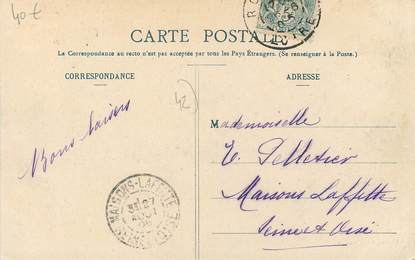 40€
CARTE POSTALE
La Correspondance au recto n'est pas acceptée par tous les Pays Étrangers. (Se renseigner à la Poste.)
CORRESPONDANCE
ADRESSE
42
Bons baisers
Mademoiselle
Pelletier
Maisons Laffitte
Seine et Oise
MAISONS-LAFFITTE
27
AOUT
SEINE-ET-OISE